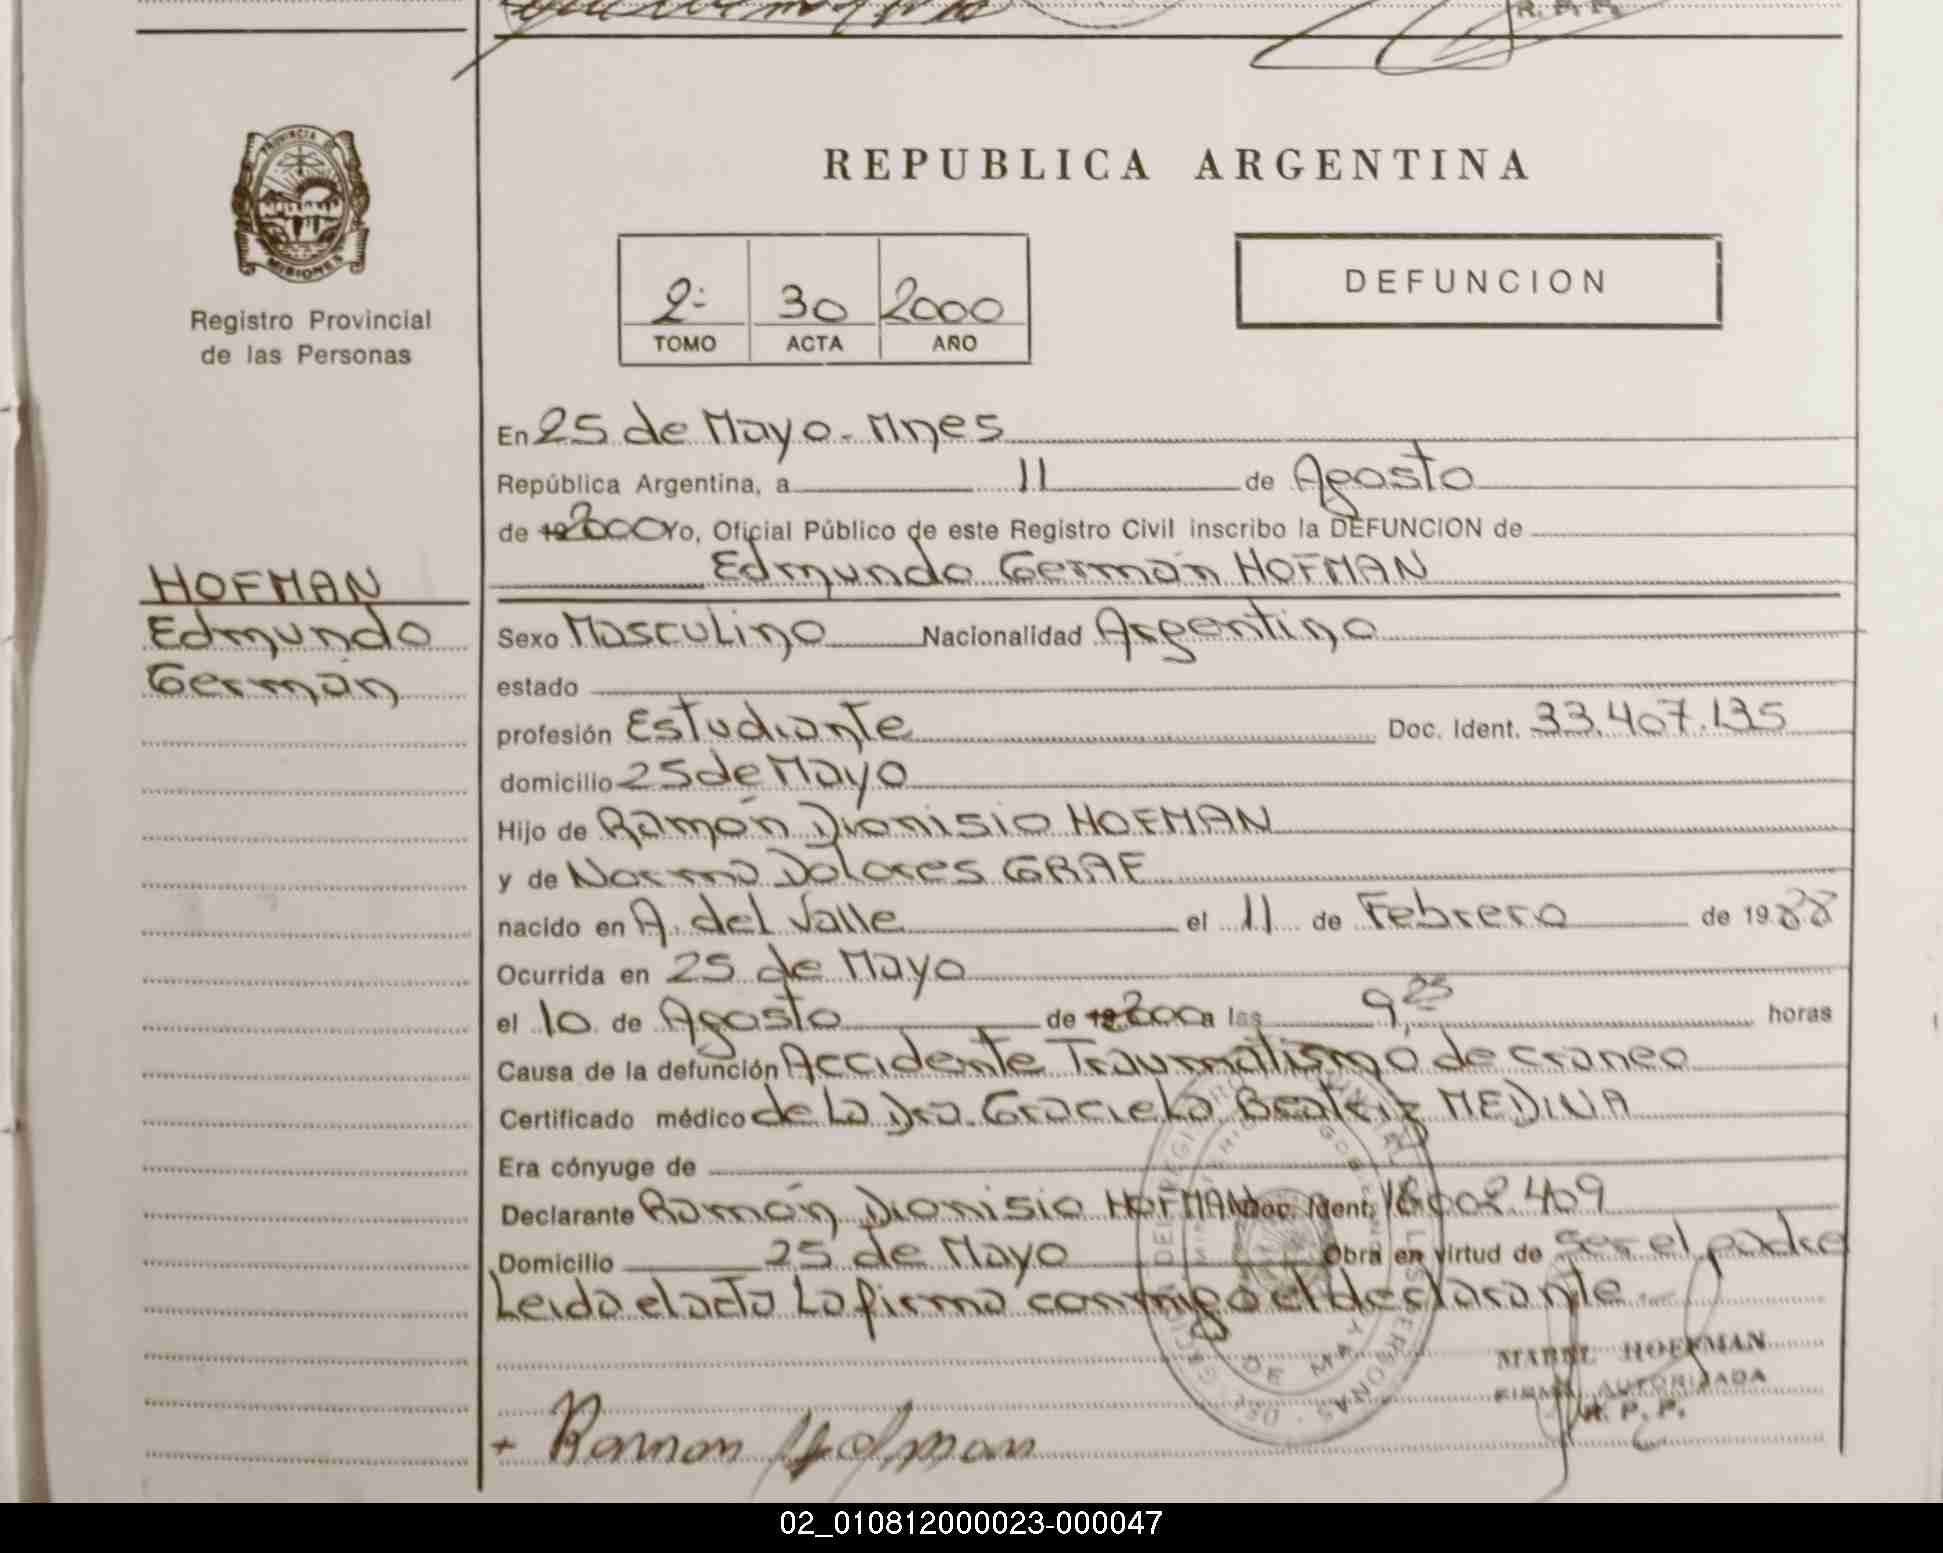 R. P. P.
PROVINCIA DE
MISIONES
Registro Provincial
de las Personas
REPUBLICA ARGENTINA
2- 30 2000
TOMO ACTA AÑO
DEFUNCION
En 25 de Mayo - Mnes
República Argentina, a 11 de Agosto
de 19 2000 Yo, Oficial Público de este Registro Civil inscribo la DEFUNCION de
Edmundo Germán HOFMAN
HOFMAN
Edmundo
Germán
Sexo Masculino Nacionalidad Argentino
estado
profesión Estudiante Doc. Ident. 33.407.135
domicilio 25 de Mayo
Hijo de Ramón Dionisio HOFMAN
y de Norma Dolores GRAF
nacido en A. del Valle el 11 de Febrero de 1988
Ocurrida en 25 de Mayo
el 10 de Agosto de 19 2000 a las 9,25 horas
Causa de la defunción Accidente Traumatismo de craneo
Certificado médico de la Dra. Graciela Beatriz MEDINA
Era cónyuge de
Declarante Ramón Dionisio HOFMAN Doc. Ident. 18.002.409
Domicilio 25 de Mayo Obra en virtud de ser el padre
Leida el acta La firma conmigo el declarante
MABEL HOFFMAN
FIRMA AUTORIZADA
R. P. P.
+ Ramon Hofman
02_010812000023-000047